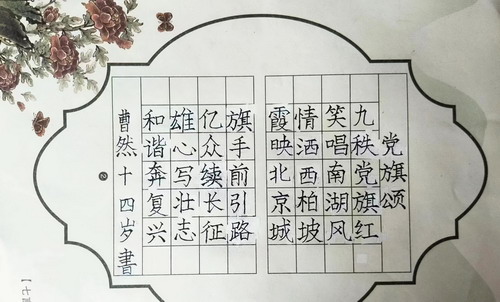 党旗颂
九秩党旗红
笑唱南湖风
情洒西柏坡
霞映北京城
旗手前引路
亿众续长征
雄心写壮志
和谐奔复兴
曹然十四岁書
2
【七